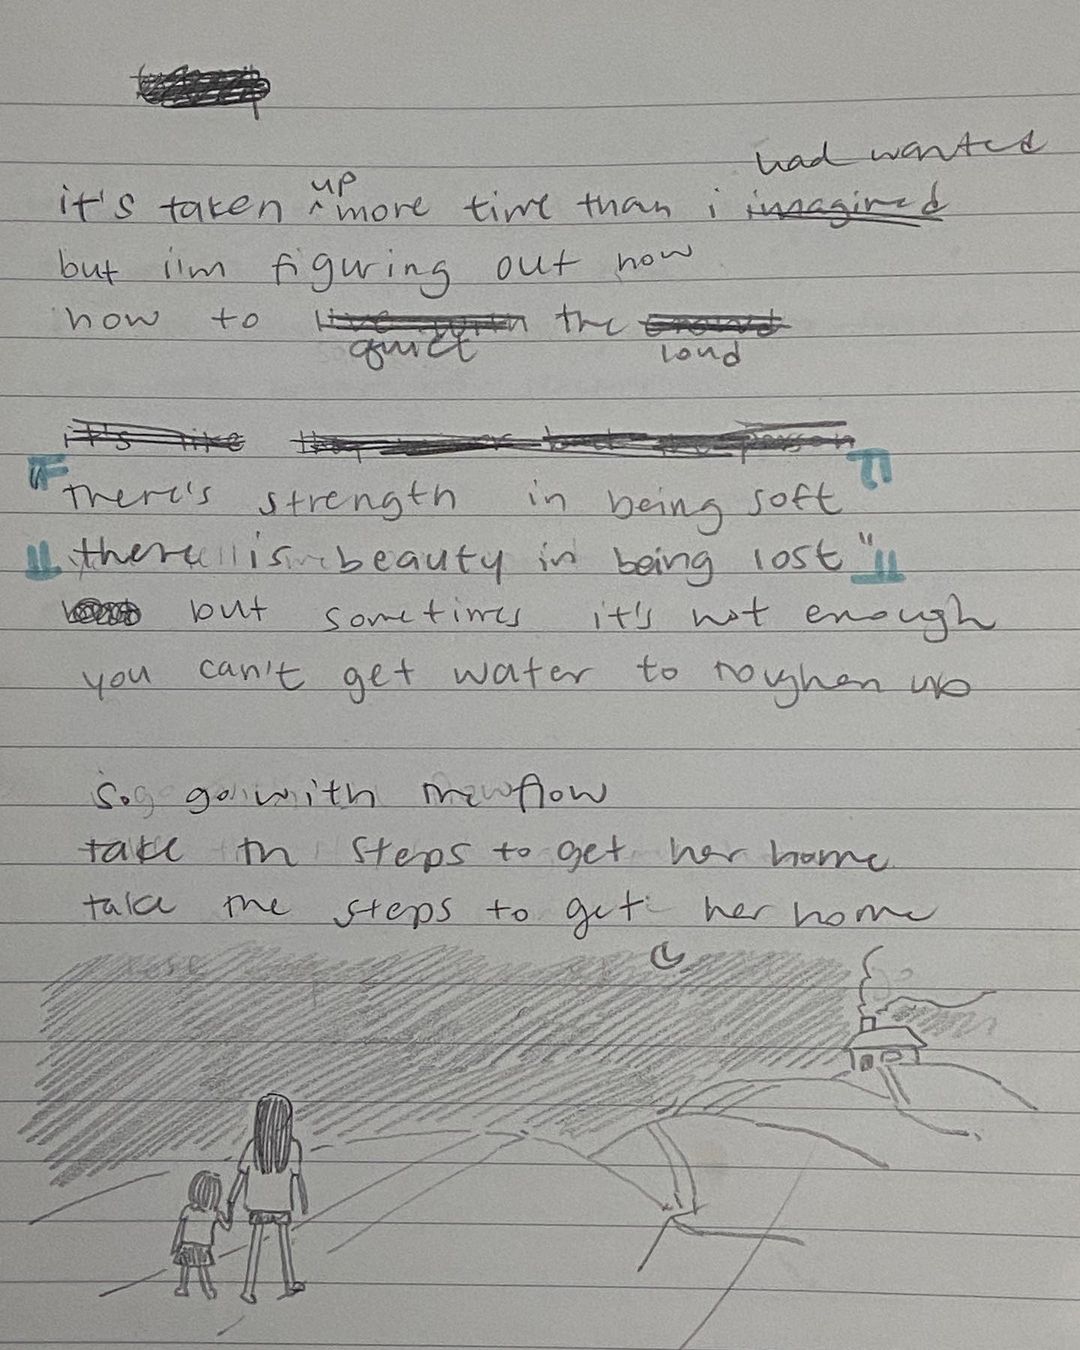 had wanted
it's taken up more time than i imagined
but i'm figuring out how
how to live with the crowd
quiet loud
it's like
there's strength in being soft
there is beauty in being lost"
but sometimes it's not enough
you can't get water to roughen up
so go with the flow
take th steps to get her home
take the steps to get her home